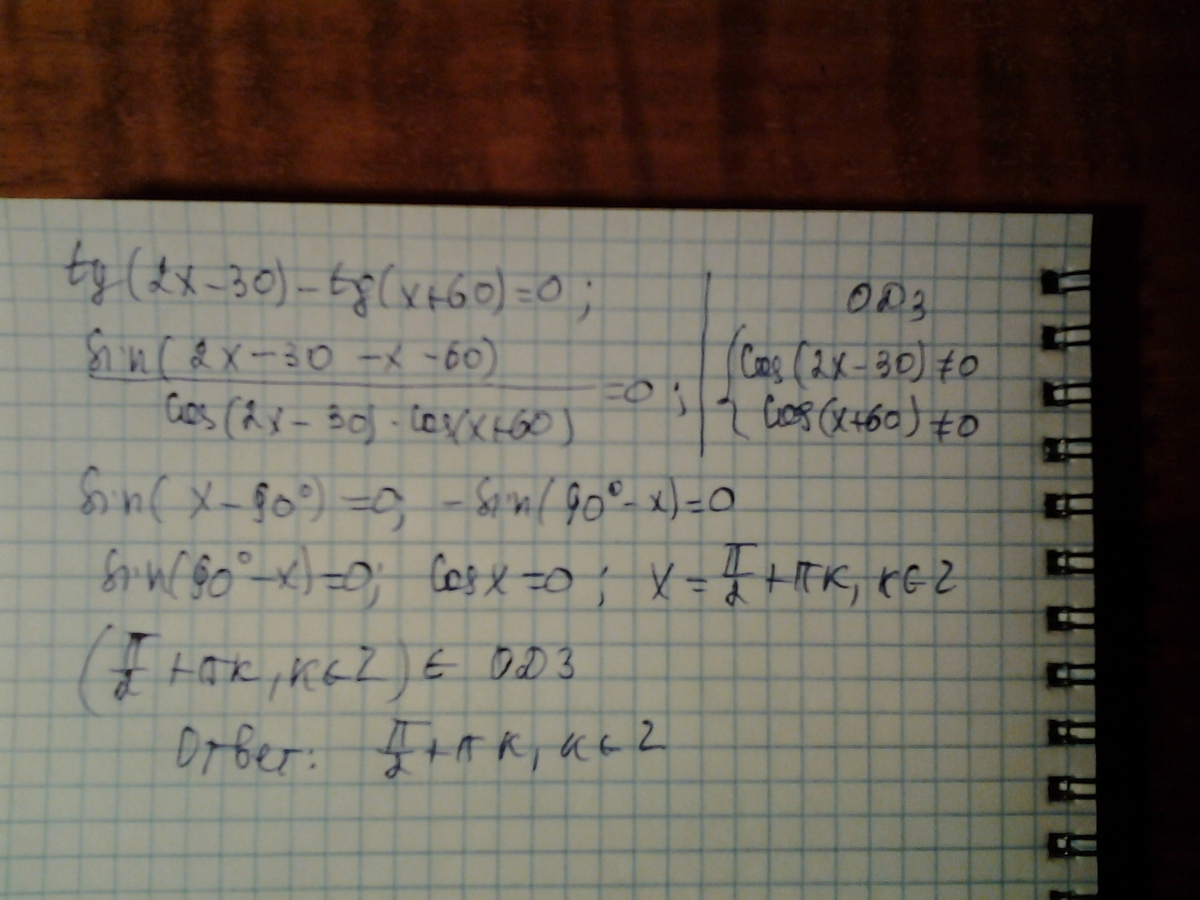 tg(2x-30)-tg(x+60)=0;
sin(2x-30-x-60)
cos(2x-30)·cos(x+60) =0;
ОДЗ
{cos(2x-30)≠0
cos(x+60)≠0
sin(x-90°)=0; -sin(90°-x)=0
sin(90°-x)=0; cosx=0; x=π/2+πк, к∈Z
(π/2+πк, к∈Z) ∈ ОДЗ
Ответ: π/2+πк, к∈Z